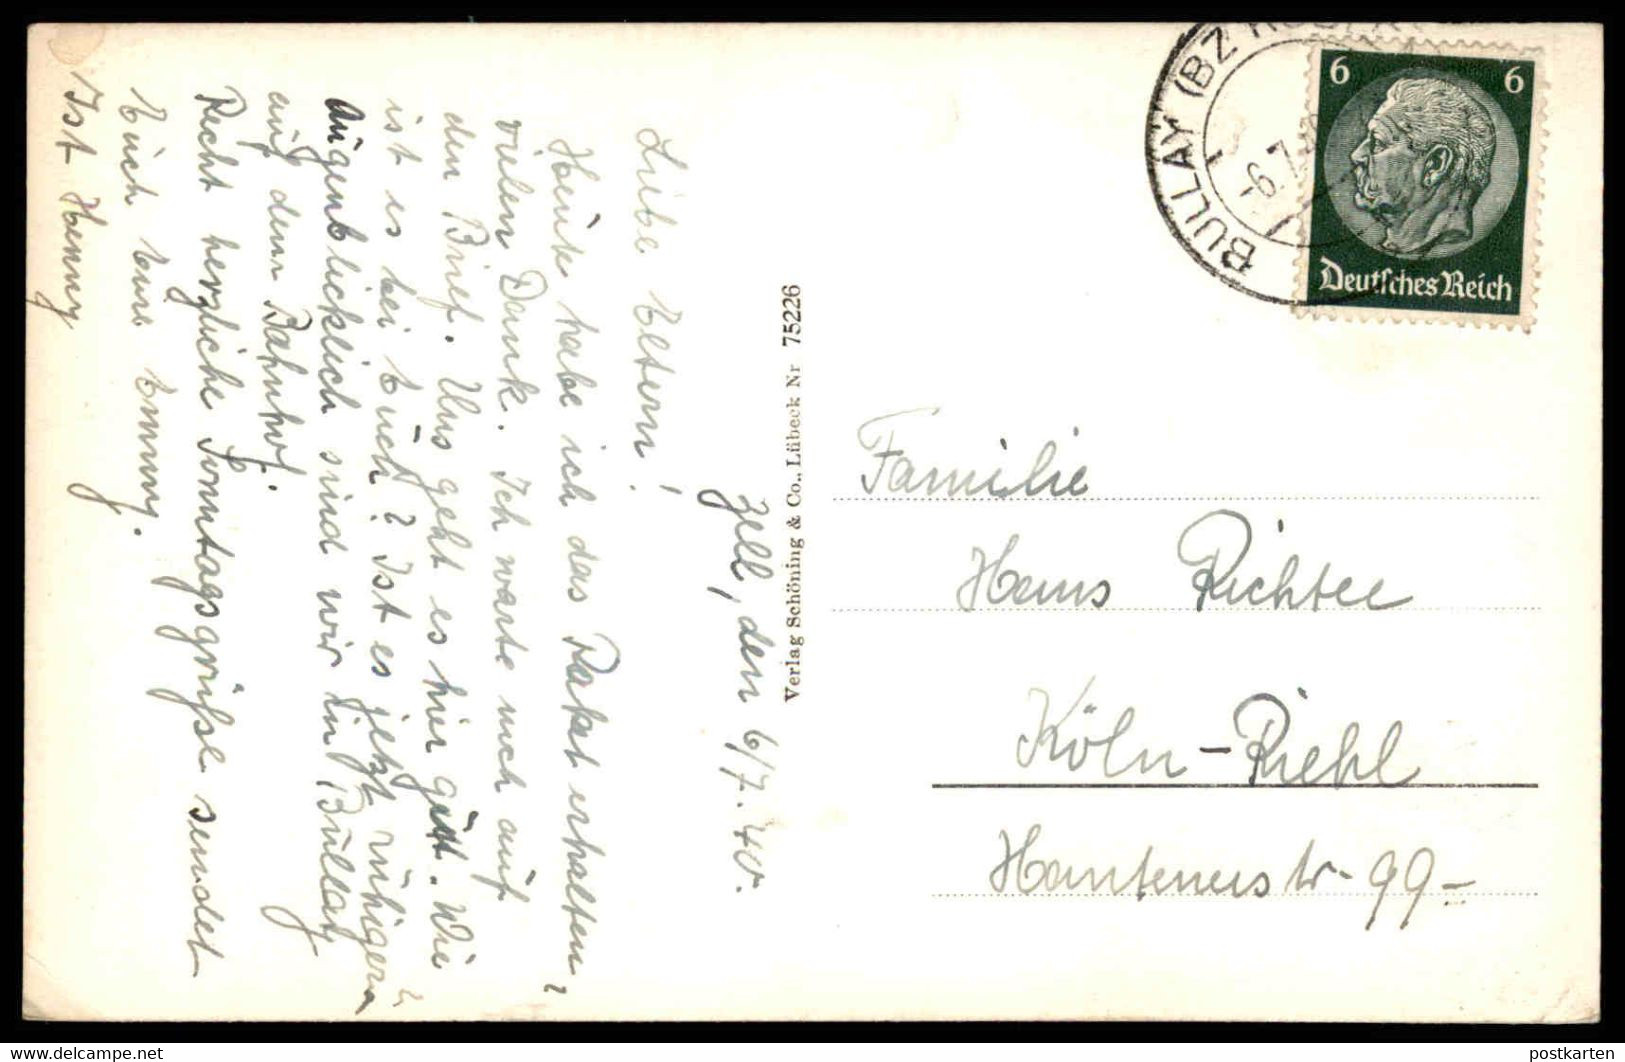 Zell, den 6/7. 40.
Liebe Eltern!
Heute habe ich das Paket erhalten,
vielen Dank. Ich warte noch auf
den Brief. Uns geht es hier gut. Wie
ist es bei Euch? Ist es jetzt ruhiger?
Augenblicklich sind wir in Bullay
auf dem Bahnhof.
Recht herzliche Sonntagsgrüße sendet
Euch Eure Emmy.
Ist Henny
Verlag Schöning & Co., Lübeck Nr 75226
BULLAY (BZ
-6.7.
6 6
Deutsches Reich
Familie
Hans Richter
Köln-Riehl
99-
postkarten
www.delcampe.net